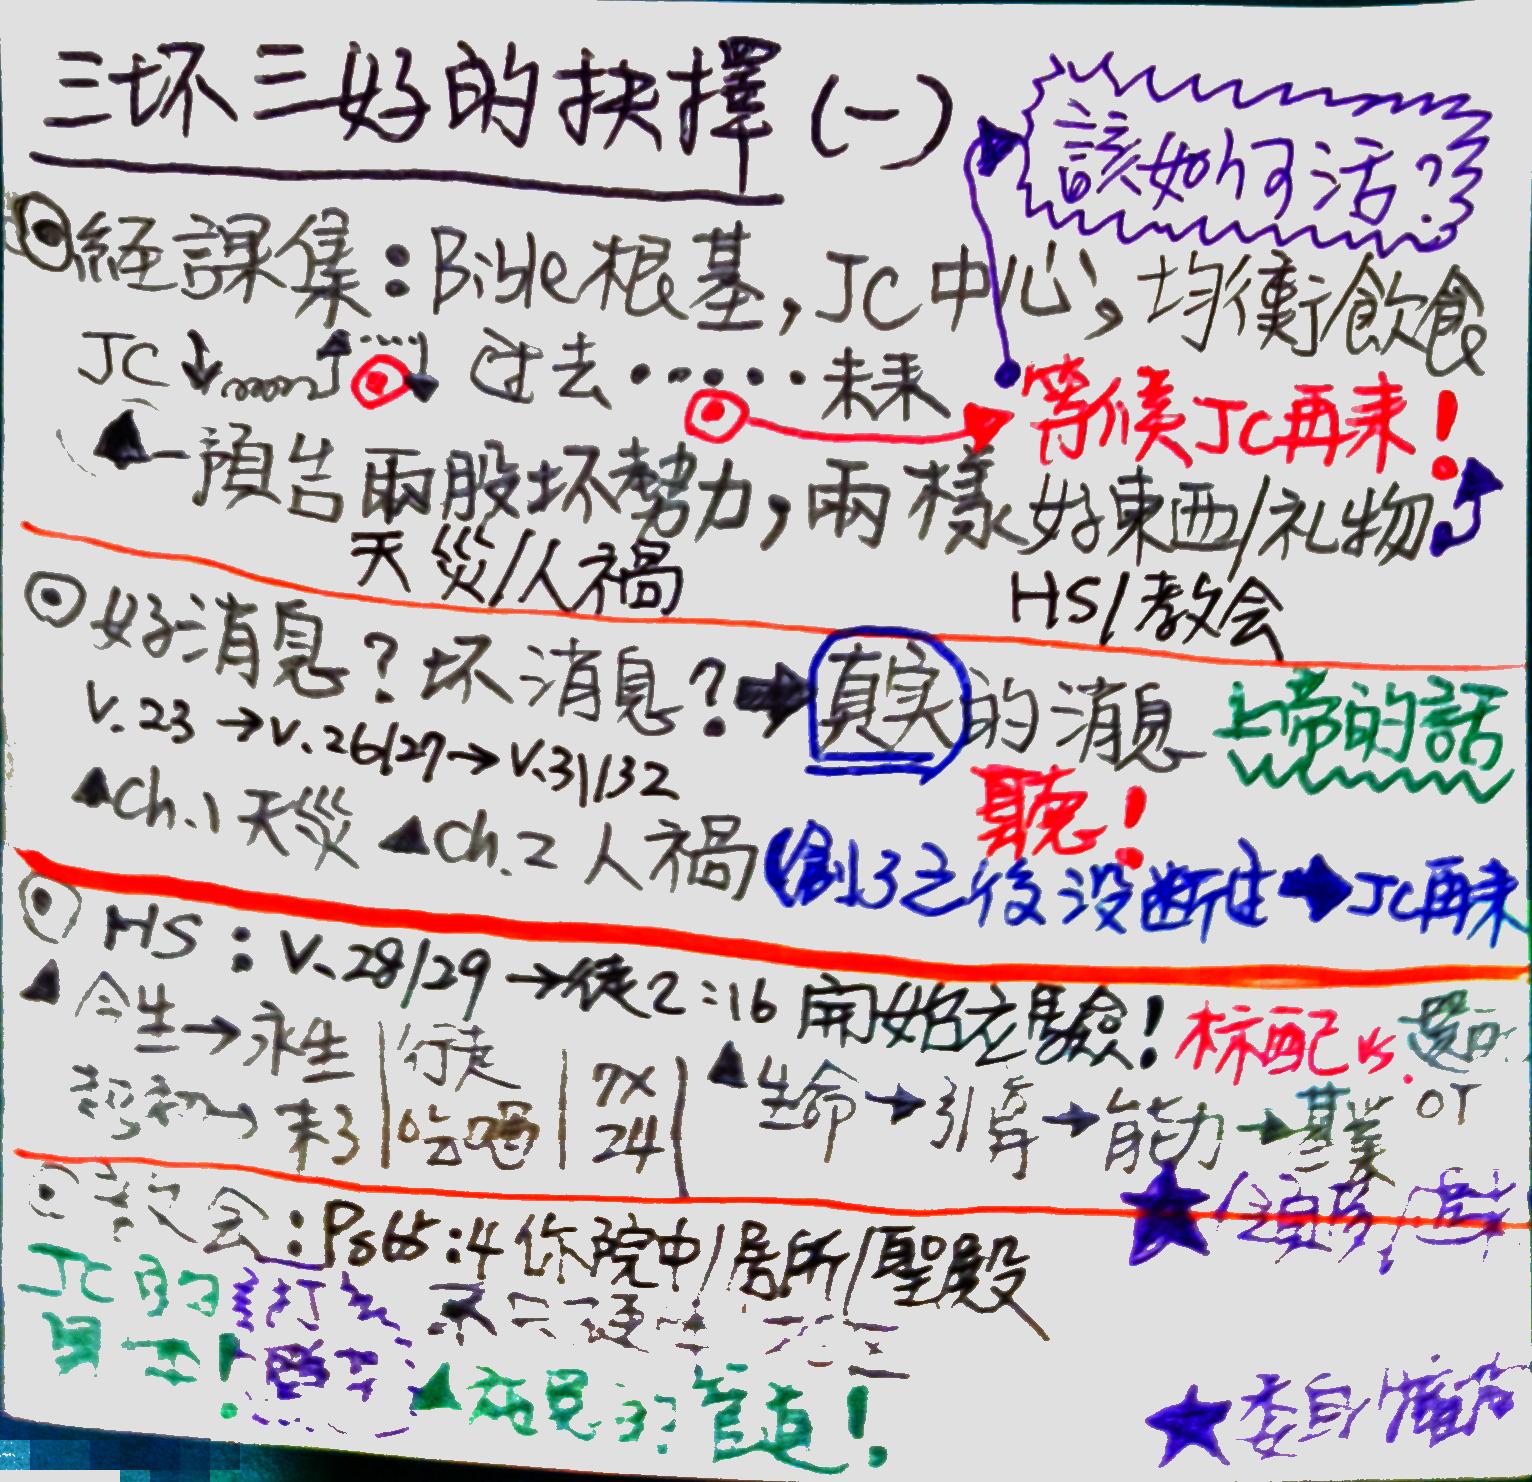 三坏三好的抉擇(一)
該如何活?
經課集:Bible根基,JC中心,均衡飲食
JC 过去······未来
等候JC再来!
預告兩股坏勢力,兩樣好東西/礼物
天災/人禍
HS/教会
好消息?坏消息?➡真实的消息 上帝的話
v.23→v.26/27→v.31/32
聽!
▲Ch.1天災▲Ch.2人禍
創3之後没断过➡JC再来
HS:v.28/29→徒2:16開始应驗!
标配vs.
OT
▲今生→永生|行走|7x24|
▲生命→引导→能力→基業
教会:Ps65:4你院中/居所/聖殿
JC的
▲施恩的管道!
★委身